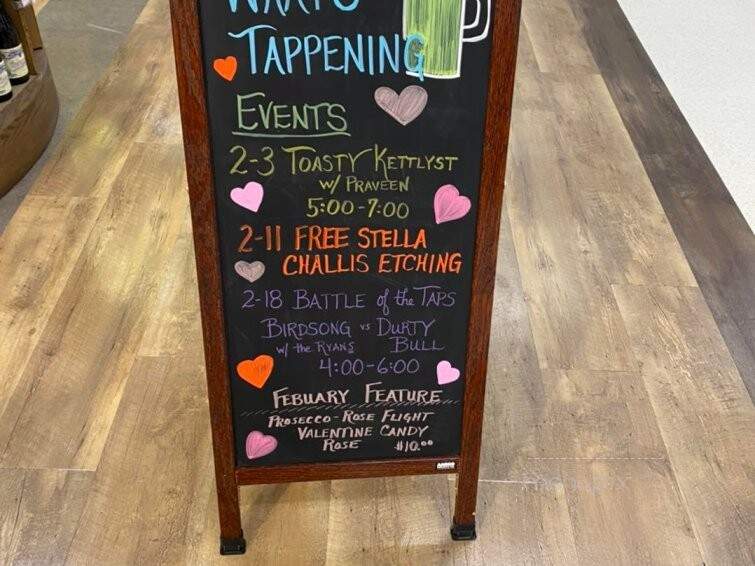 TAPPENING
EVENTS
2-3 TOASTY KETTLYST
W/ PRAVEEN
5:00-7:00
2-11 FREE STELLA
CHALLIS ETCHING
2-18 BATTLE of the TAPS
BIRDSONG vs DURTY
w/ the RYANS BULL
4:00-6:00
FEBUARY FEATURE
PROSECCO - ROSE FLIGHT
VALENTINE CANDY
ROSE $10.00